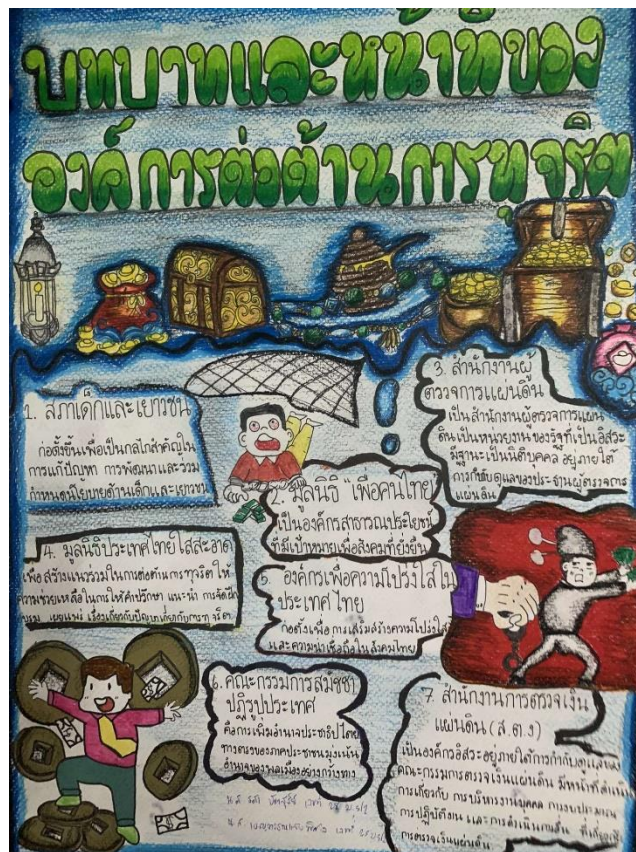 บทบาทและหน้าที่ของ
องค์การต่อต้านการทุจริต
1. สภาเด็กและเยาวชน
ก่อตั้งขึ้นเพื่อเป็นกลไกสำคัญใน
การแก้ปัญหา การพัฒนาและร่วม
กำหนดนโยบายด้านเด็กและเยาวชน
2. มูลนิธิ "เพื่อคนไทย"
เป็นองค์กรสาธารณประโยชน์
ที่มีเป้าหมายเพื่อสังคมที่ยั่งยืน
3. สำนักงานผู้
ตรวจการแผ่นดิน
เป็นสำนักงานผู้ตรวจการแผ่น
ดินเป็นหน่วยงานของรัฐที่เป็นอิสระ
มีฐานะเป็นนิติบุคคล อยู่ภายใต้
การกำกับดูแลของประธานผู้ตรวจการ
แผ่นดิน
4. มูลนิธิประเทศไทยใสสะอาด
เพื่อสร้างแนวร่วมในการต่อต้านการทุจริต ให้
ความช่วยเหลือในการให้คำปรึกษา แนะนำ การจัดฝึก
อบรม เผยแพร่ เรื่องเกี่ยวกับปัญหาเกี่ยวกับการทุจริต
5. องค์กรเพื่อความโปร่งใสใน
ประเทศไทย
ก่อตั้งเพื่อการเสริมสร้างความโปร่งใส
และความน่าเชื่อถือในสังคมไทย
6. คณะกรรมการสมัชชา
ปฏิรูปประเทศ
คือการเพิ่มอำนาจประชาธิปไตย
ทางตรงของภาคประชาชนมุ่งเน้น
อำนาจของพลเมืองอย่างกว้างขวาง
7. สำนักงานการตรวจเงิน
แผ่นดิน (ส.ต.ง)
เป็นองค์กรอิสระอยู่ภายใต้การกำกับดูแลของ
คณะกรรมการตรวจเงินแผ่นดิน มีหน้าที่ดำเนิน
การเกี่ยวกับ การบริหารงานบุคคล การงบประมาณ
การปฏิบัติงาน และการดำเนินงานอื่น ที่เกี่ยวกับ
การตรวจเงินแผ่นดิน